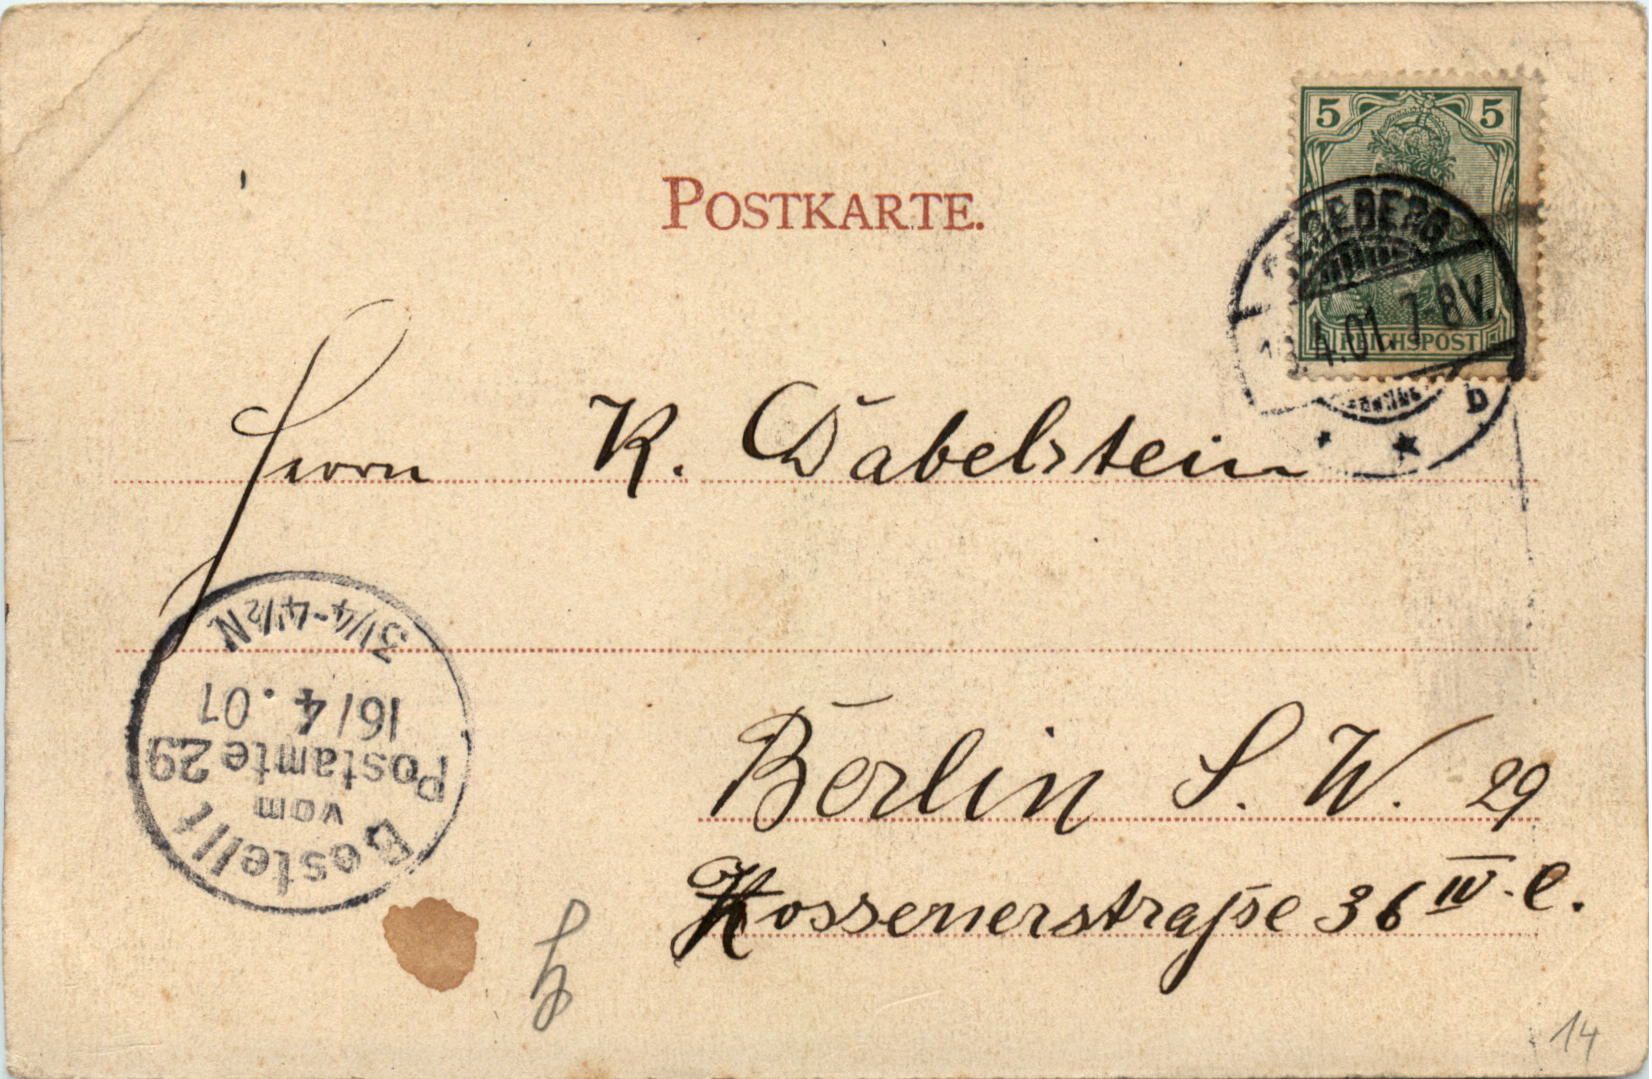 POSTKARTE.
5 5
SEGEBERG
4.01. 7-8V.
REICHSPOST
D
Herrn K. Dabelstein
Berlin S. W. 29
Kossenerstraße 36 IV. l.
Bestellt
vom
Postamte 29
16/4.01
3 1/4-4 1/2 N
14